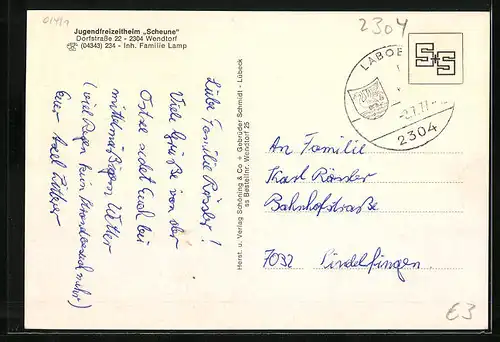 01421
Jugendfreizeitheim „Scheune"
Dorfstraße 22 - 2304 Wendtorf
☎ (04343) 234 - Inh. Familie Lamp
Liebe Familie Rössler!
Viele Grüße von der
Ostsee sendet Euch bei
Wetter
(viel Regen kein
Euer Axel
Herst. u. Verlag Schöning & Co + Gebrüder Schmidt - Lübeck
ss Bestellnr. Wendtorf 25
2304
LABOE
2304
S+S
An Familie
Karl Rössler
Bahnhofstraße
7032 Sindelfingen
€3